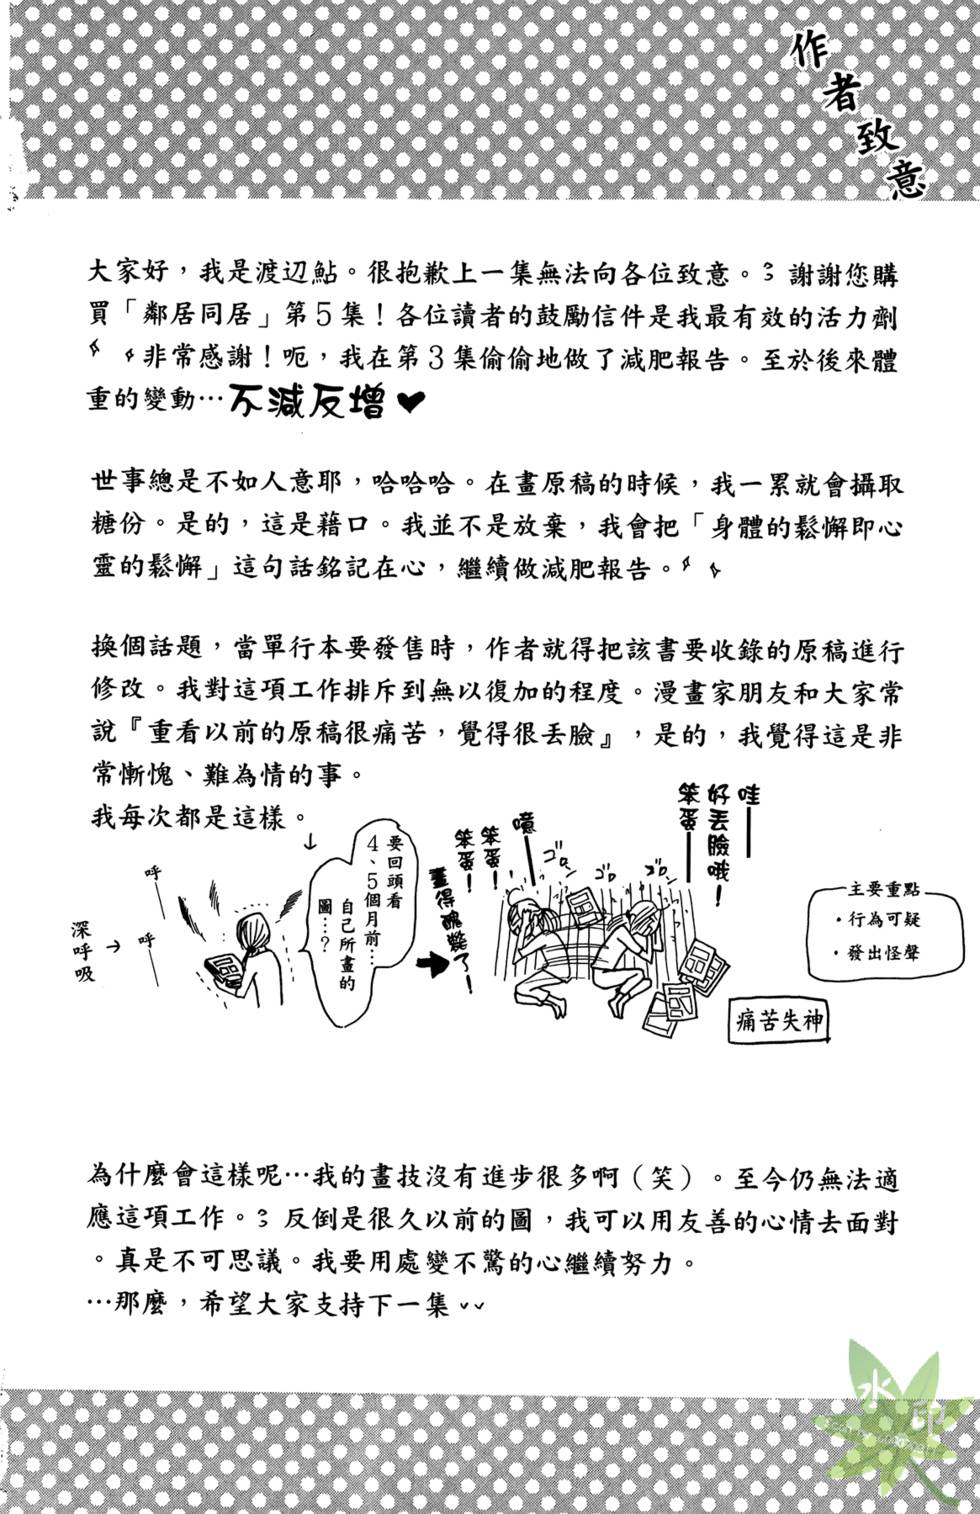 作者致意
大家好，我是渡辺鮎。很抱歉上一集無法向各位致意。謝謝您購
買「鄰居同居」第5集！各位讀者的鼓勵信件是我最有效的活力劑
非常感謝！呃，我在第3集偷偷地做了減肥報告。至於後來體
重的變動…不減反增♥
世事總是不如人意耶，哈哈哈。在畫原稿的時候，我一累就會攝取
糖份。是的，這是藉口。我並不是放棄，我會把「身體的鬆懈即心
靈的鬆懈」這句話銘記在心，繼續做減肥報告。
換個話題，當單行本要發售時，作者就得把該書要收錄的原稿進行
修改。我對這項工作排斥到無以復加的程度。漫畫家朋友和大家常
說『重看以前的原稿很痛苦，覺得很丟臉』，是的，我覺得這是非
常慚愧、難為情的事。
我每次都是這樣。
↓
深呼吸→
呼—
呼—
要回頭看
4、5個月前…
自己所畫的
圖…？
畫得醜斃了！
笨蛋！
笨蛋！
噫—
ゴロン
ゴロ
ゴロン
哇—
好丟臉哦！
笨蛋—
痛苦失神
主要重點
・行為可疑
・發出怪聲
為什麼會這樣呢…我的畫技沒有進步很多啊（笑）。至今仍無法適
應這項工作。反倒是很久以前的圖，我可以用友善的心情去面對
。真是不可思議。我要用處變不驚的心繼續努力。
…那麼，希望大家支持下一集
水印